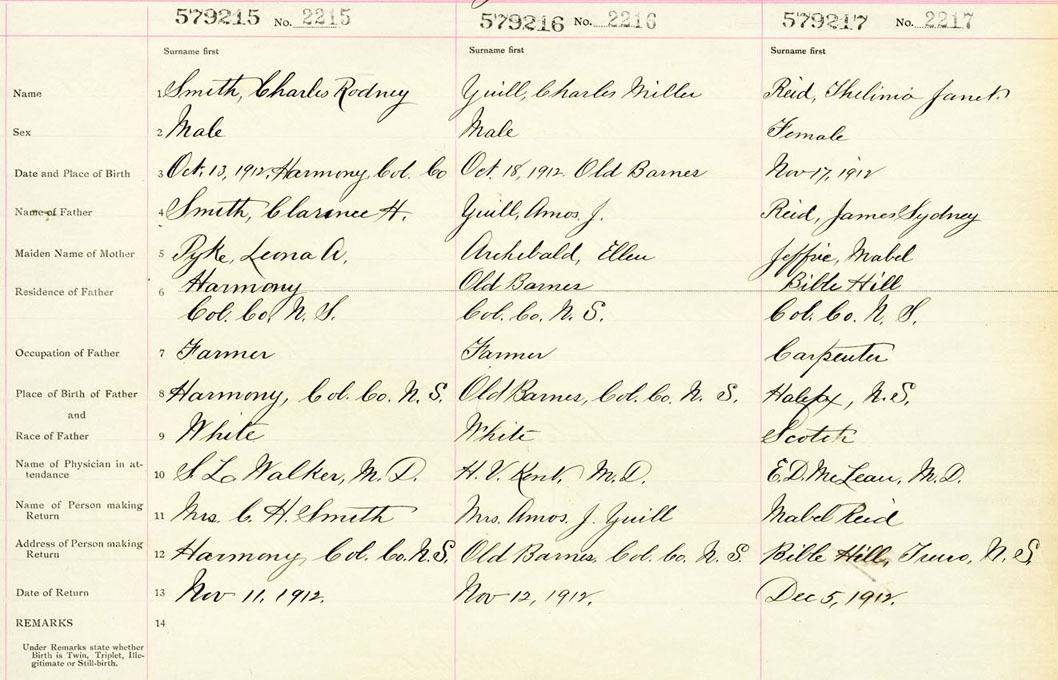 579215 No. 2215 579216 No. 2216 579217 No. 2217
Surname first Surname first Surname first
Name 1 Smith, Charles Rodney Yuill, Charles Miller Reid, Thelima Janet
Sex 2 Male Male Female
Date and Place of Birth 3 Oct. 13, 1912, Harmony, Col. Co Oct. 18, 1912. Old Barnes Nov 17, 1912
Name of Father 4 Smith, Clarence H. Yuill, Amos J. Reid, James Sydney
Maiden Name of Mother 5 Pyke, Leona A. Archibald, Ellen Mabel
Residence of Father 6 Harmony Old Barnes Bible Hill
Col. Co. N. S. Col. Co. N. S. Col. Co. N. S.
Occupation of Father 7 Farmer Farmer Carpenter
Place of Birth of Father 8 Harmony, Col. Co. N. S. Old Barnes, Col. Co. N. S. Halifx, N.S.
and
Race of Father 9 White White Scotch
Name of Physician in at- 10 S. L. Walker, M. D. H. V. Kent, M. D. E. D. McLean, M. D.
tendance
Name of Person making 11 Mrs. C. H. Smith Mrs. Amos. J. Yuill Mabel Reid
Return
Address of Person making 12 Harmony, Col. Co. N. S. Old Barnes, Col. Co. N. S. Bible Hill, Truro, N. S.
Return
Date of Return 13 Nov 11, 1912. Nov 12, 1912. Dec 5, 1912.
REMARKS 14
Under Remarks state whether
Birth is Twin, Triplet, Ille-
gitimate or Still-birth.